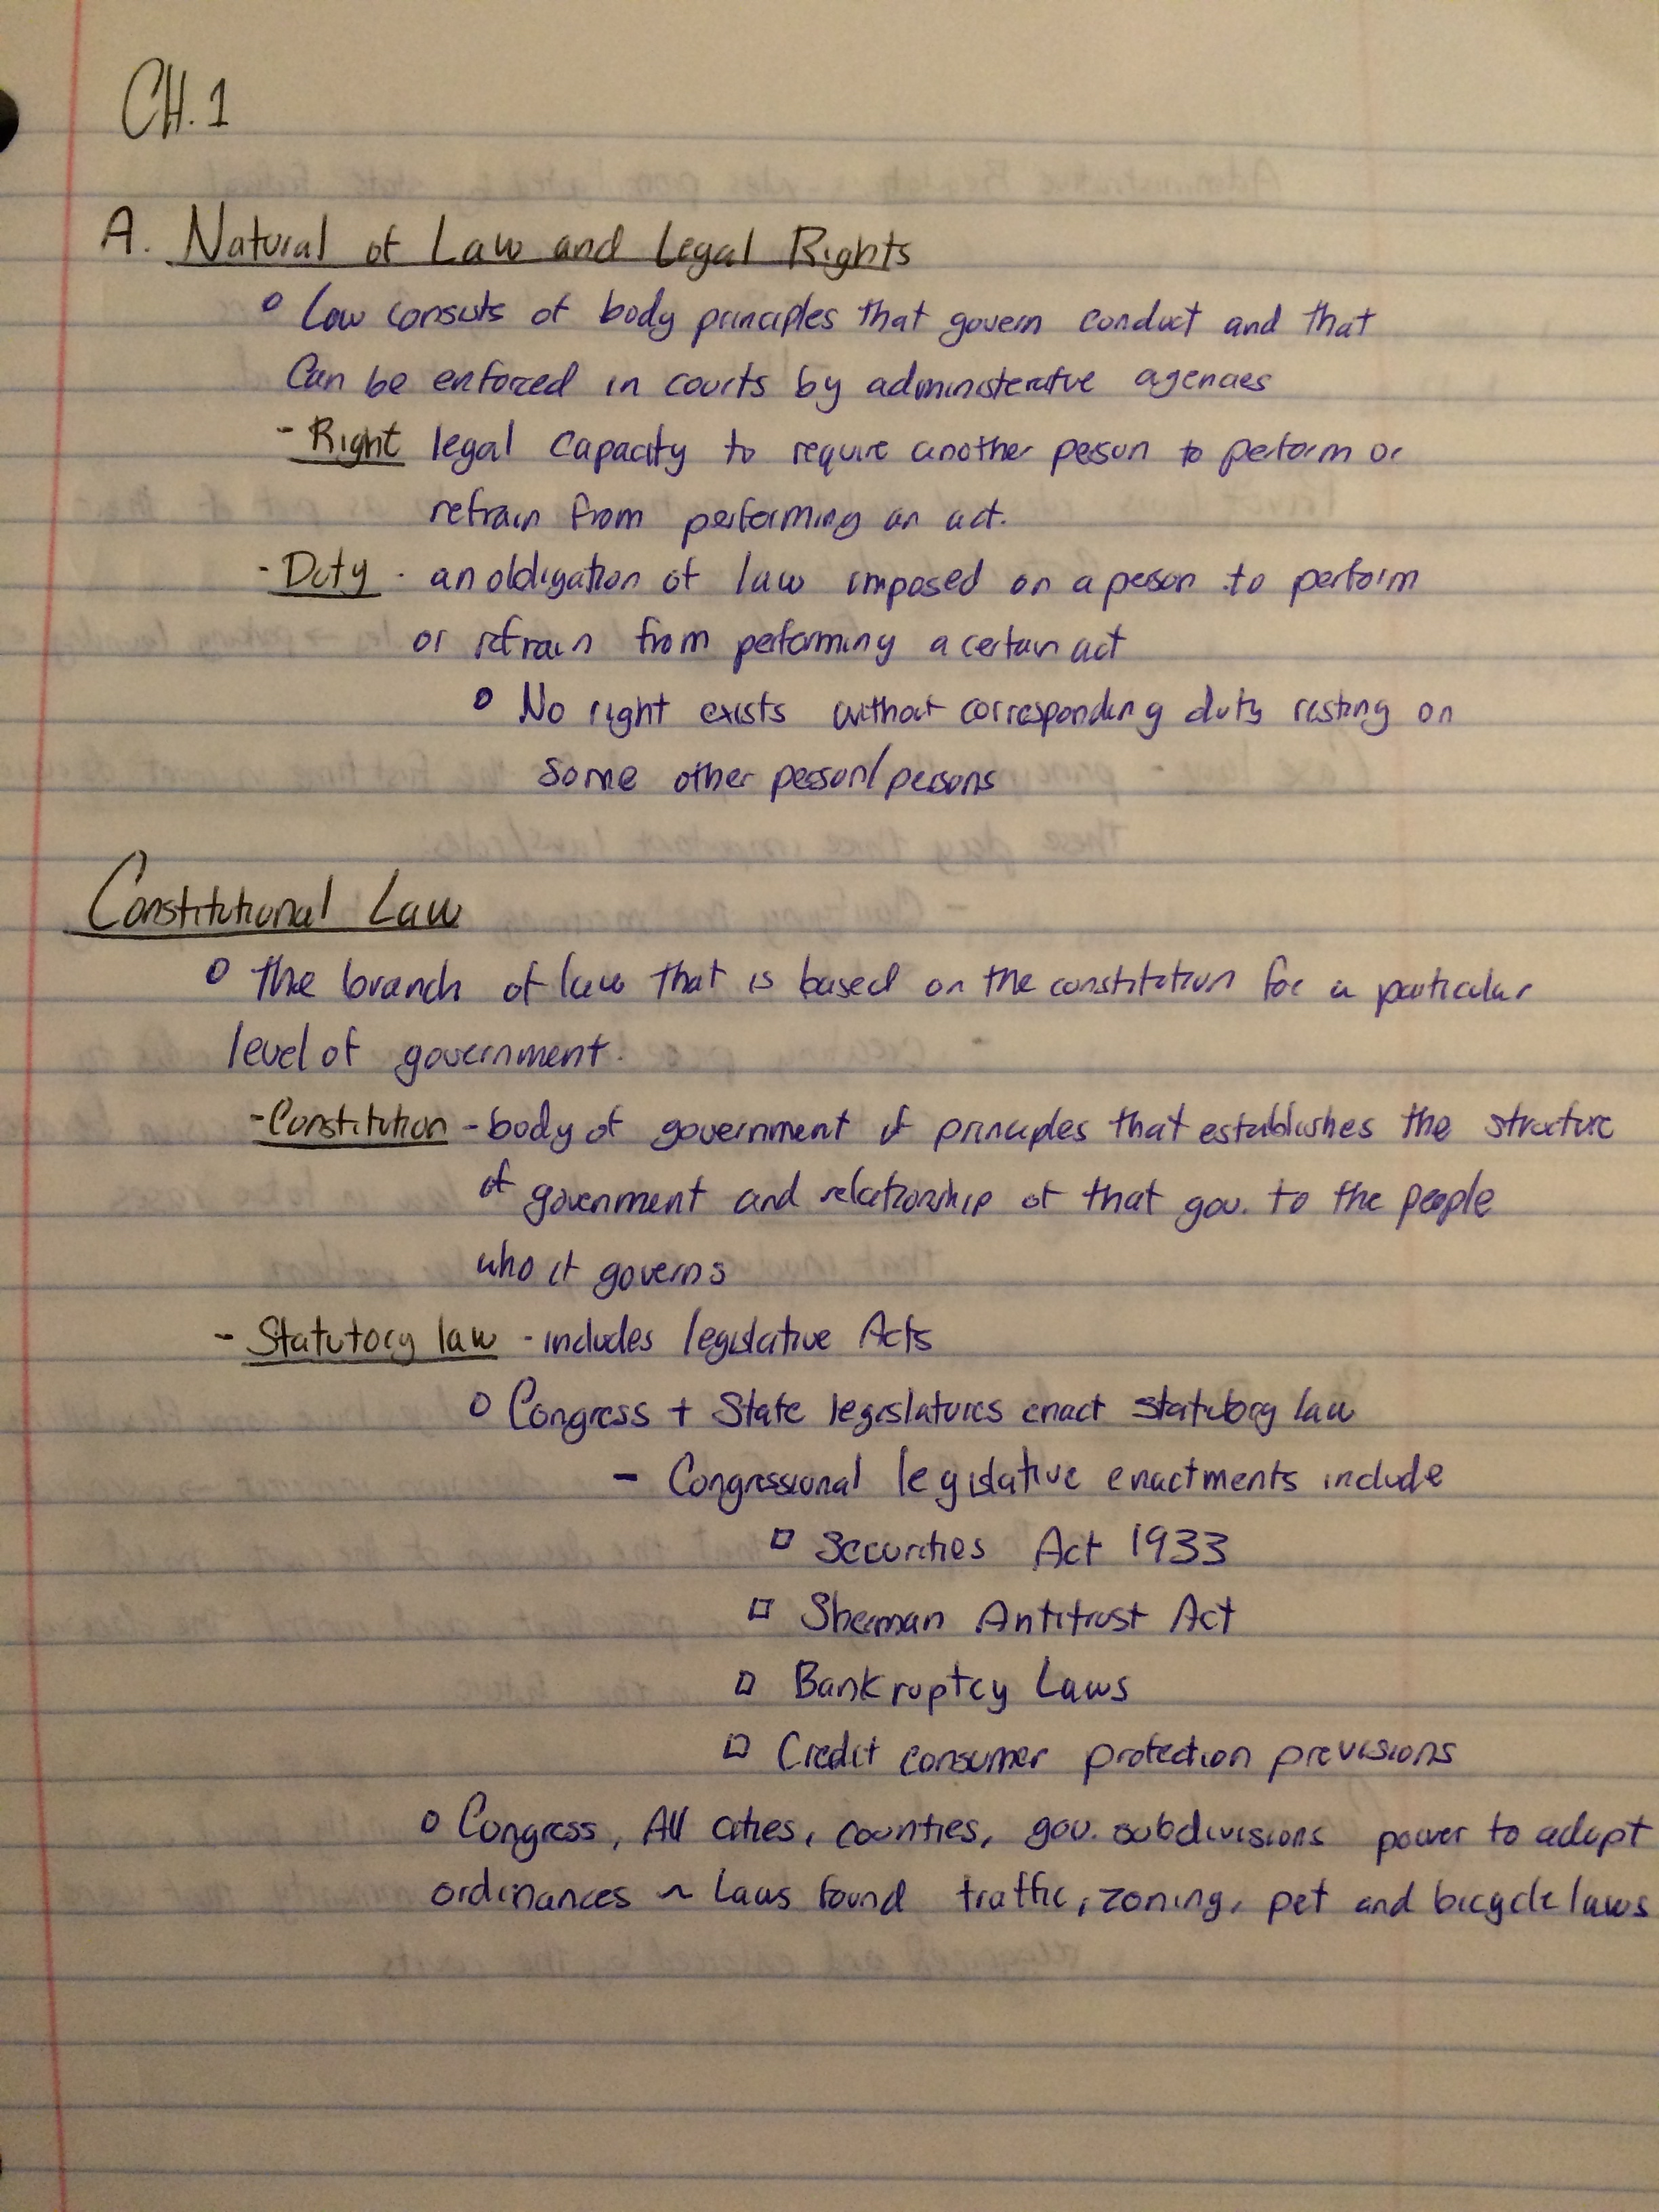 CH. 1
A. Natural of Law and Legal Rights
o Law consists of body principles that govern conduct and that
Can be enforced in courts by administerative agencies
- Right legal capacity to require another person to perform or
refrain from performing an act.
- Duty - an obligation of law imposed on a person to perform
or refrain from performing a certain act
o No right exists without corresponding duty resting on
some other person/persons
Constitutional Law
o the branch of law that is based on the constitution for a particular
level of government.
- Constitution - body of government of principles that establishes the structure
of government and relationship of that gov. to the people
who it governs
- Statutory law - includes legislative Acts
o Congress + State legislatures enact statutory law
- Congressional legislative enactments include
□ Securities Act 1933
□ Sherman Antitrust Act
□ Bankruptcy Laws
□ Credit consumer protection provisions
o Congress, All cities, counties, gov. subdivisions power to adopt
ordinances ~ Laws found traffic, zoning, pet and bicycle laws